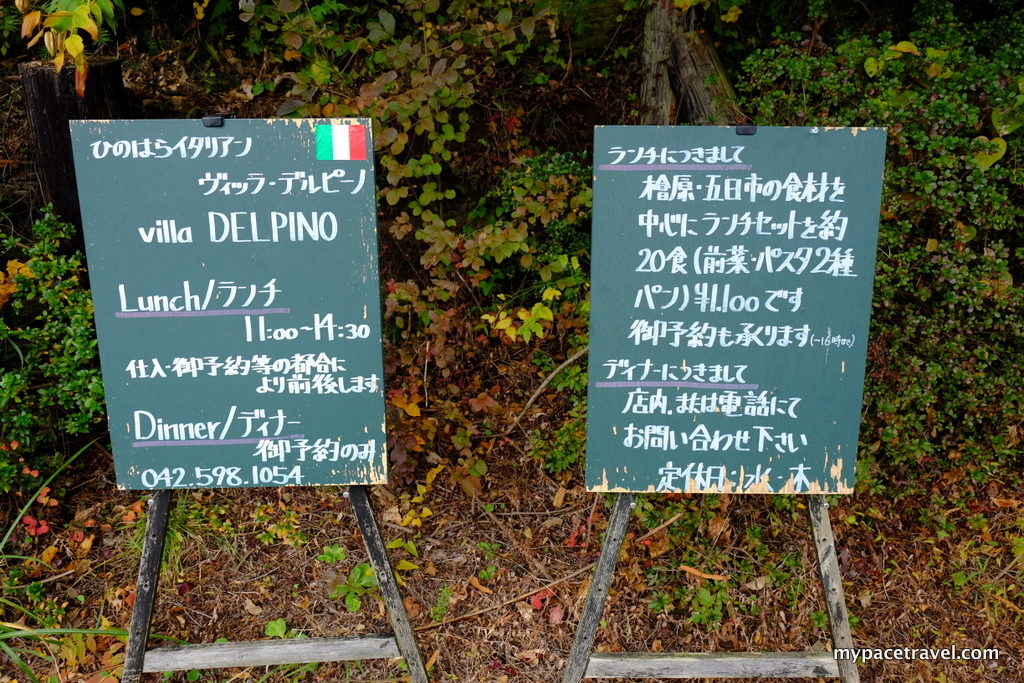 ひのはらイタリアン
ヴィッラ・デルピーノ
villa DELPINO
Lunch/ランチ
11:00~14:30
仕入・御予約等の都合に
より前後します
Dinner/ディナー
御予約のみ
042.598.1054
ランチにつきまして
檜原・五日市の食材を
中心にランチセットを約
20食(前菜・パスタ2種
パン)¥1.100です
御予約も承ります(~16時まで)
ディナーにつきまして
店内.または電話にて
お問い合わせ下さい
定休日:水・木
mypacetravel.com